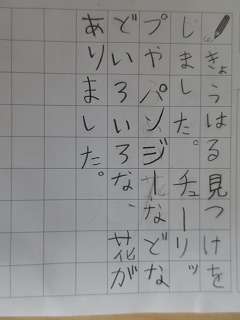 きょうはる見つけを
じました。チューリッ
プやパンジーなどな
どいろいろな、花が
ありました。